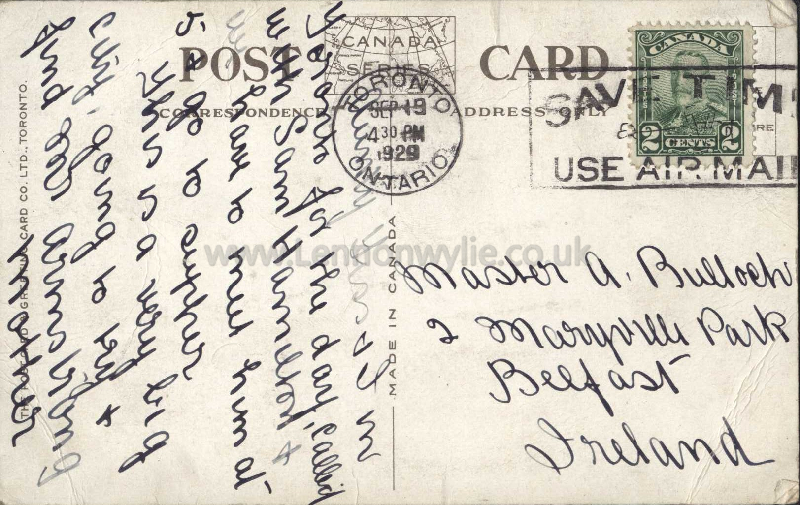 POST CARD
CANADA
SERIES
CORRESPONDENCE
ADDRESS ONLY
TORONTO
SEP 19
4 30 PM
1929
ONTARIO
SAVE TIME
USE AIR MAIL
CANADA
2 CENTS 2
Master A. Bulloch
2 Maryville Park
Belfast
Ireland
in
Toronto for the day, called
with Sam Hamilton &
have to meet him at
5 & go to supper.
This is a very big
city, going to try &
find Ed Armstrong
MADE IN CANADA
CARD CO. LTD., TORONTO.
www.Lendonwylie.co.uk